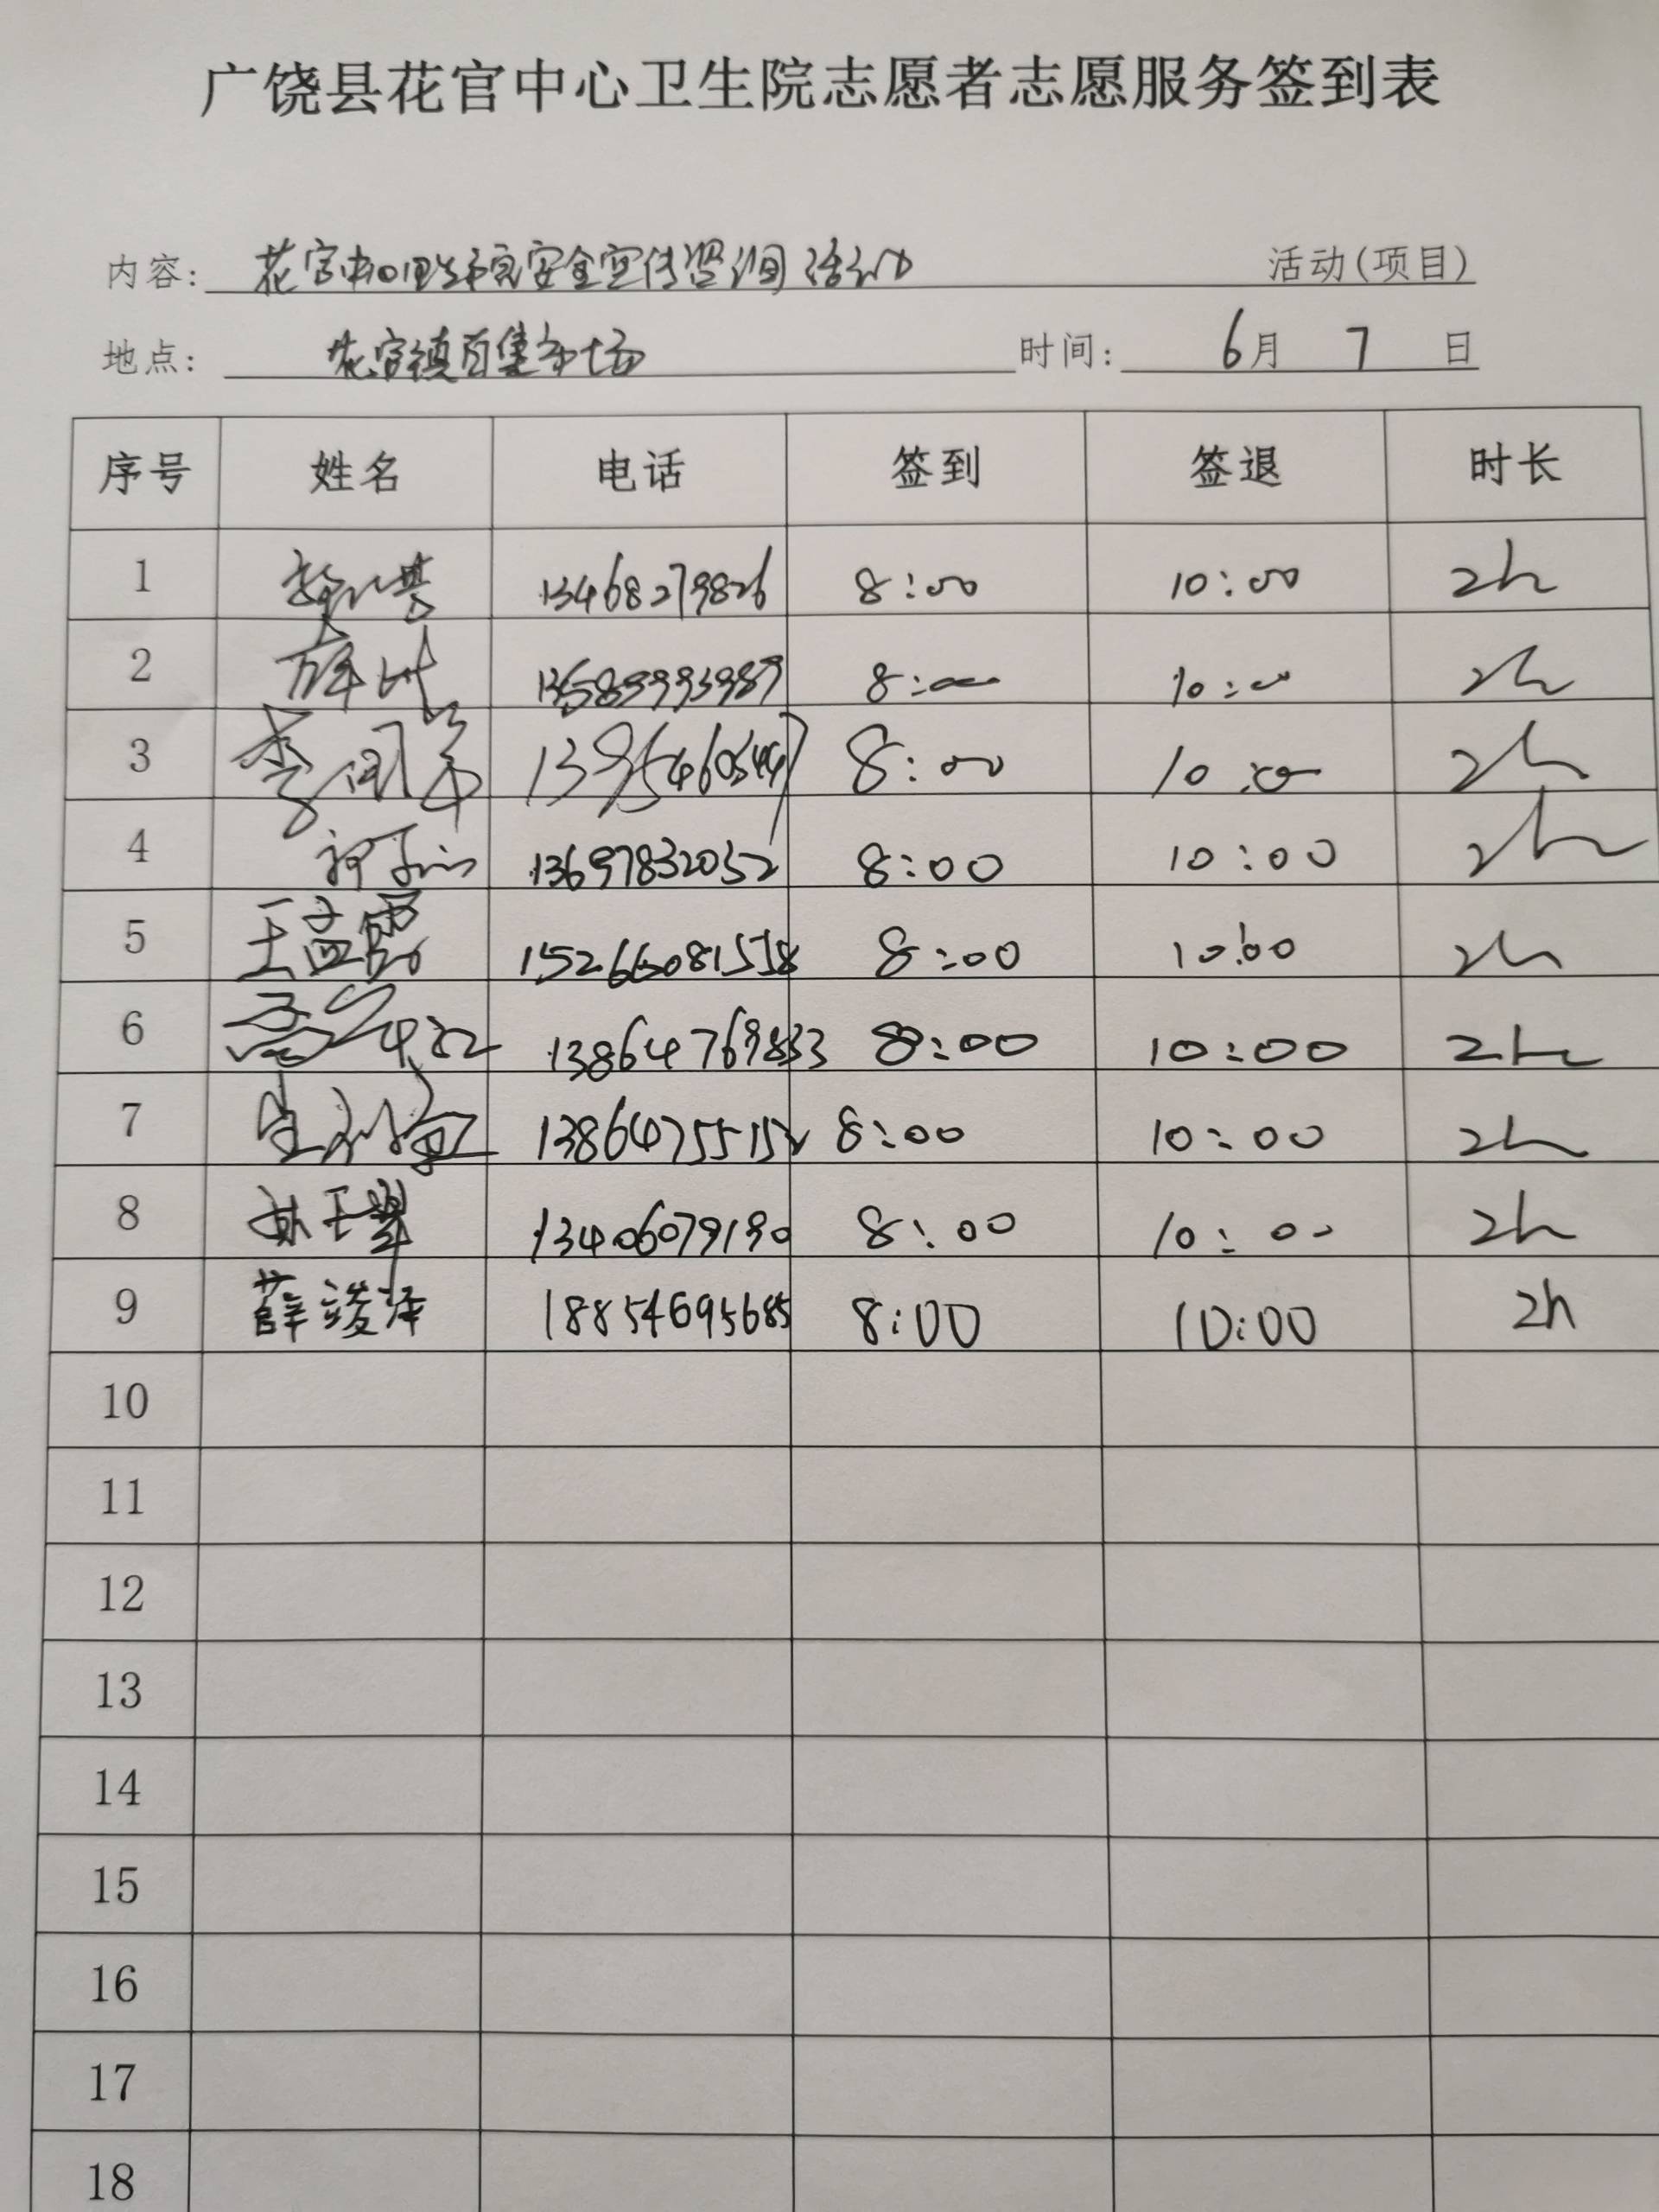 广饶县花官中心卫生院志愿者志愿服务签到表
内容: 花官中心卫生院安全宣传咨询活动 活动(项目)
地点: 花官镇百集市场 时间: 6月 7 日
序号 姓名 电话 签到 签退 时长
1 13468279826 8:00 10:00 2h
2 13589993989 8:00 10:00 2h
3 8:00 10:00 2h
4 13697832052 8:00 10:00 2h
5 王孟霞 8:00 10:00 2h
6 13864769833 8:00 10:00 2h
7 13864755152 8:00 10:00 2h
8 13406079190 8:00 10:00 2h
9 薛竣泽 18854695685 8:00 10:00 2h
10
11
12
13
14
15
16
17
18